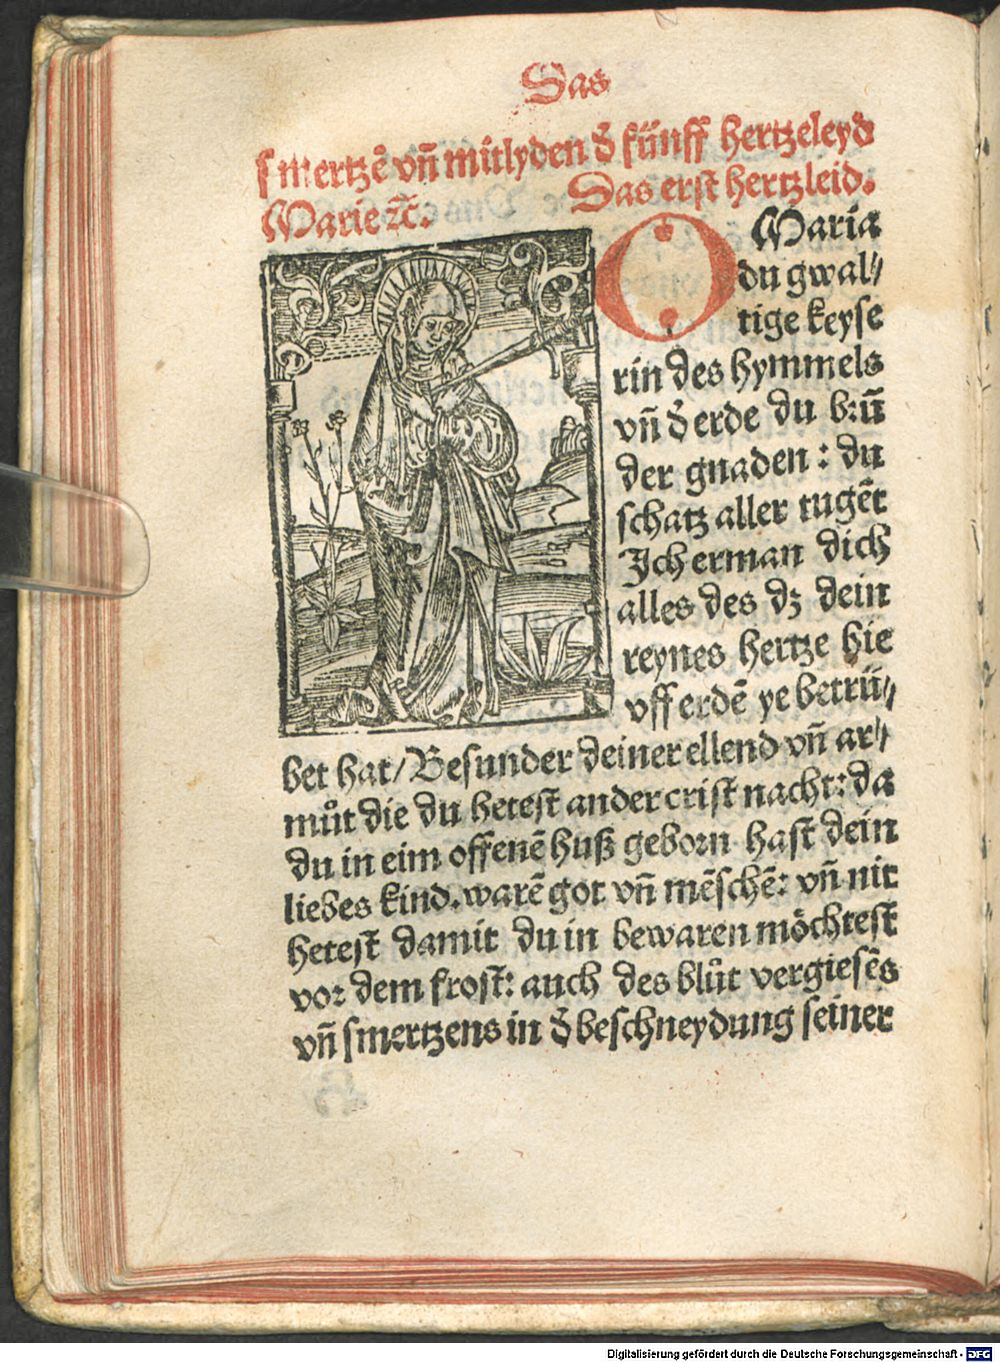 Das
smertzē vñ mitlyden d̄ fünff hertzeleyd
Marie ⁊c̄. Das erst hertzleid.
O Maria
du gwal⸗
tige keyse
rin des hymmels
vñ d̄ erde du brū
der gnaden : du
schatz aller tugēt
Ich erman dich
alles des dz dein
reynes hertze hie
vff erdē ye betrü⸗
bet hat/ Besunder deiner ellend vñ ar⸗
můt die du hetest an der crist nacht: da
du in eim offenē huß geborn hast dein
liebes kind. warē got vñ mēschē: vñ nit
hetest damit du in bewaren möchtest
vor dem frost: auch des blůt vergiesēs
vñ smertzens in d̄ beschneydung seiner
Digitalisierung gefördert durch die Deutsche Forschungsgemeinschaft - DFG